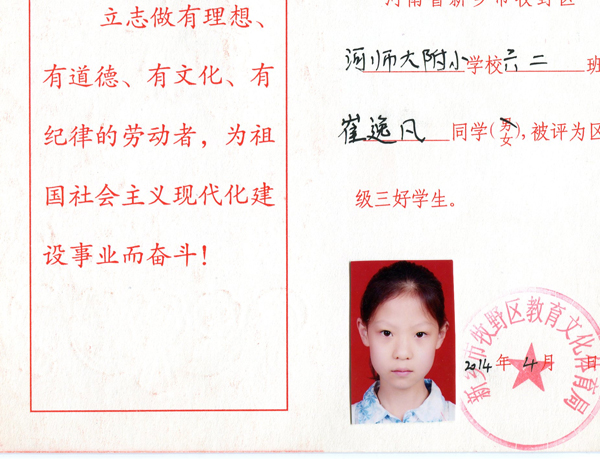 立志做有理想、
有道德、有文化、有
纪律的劳动者，为祖
国社会主义现代化建
设事业而奋斗！
河南省新乡市牧野区
河师大附小学校六二班
崔逸凡同学(男女),被评为区
级三好学生。
新乡市牧野区教育文化体育局
2014年4月 日